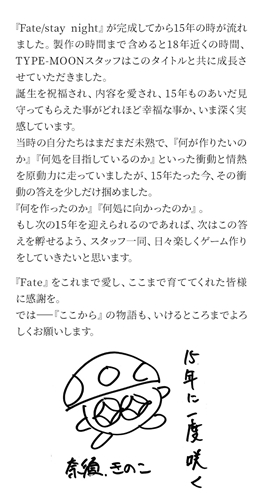 『Fate/stay night』が完成してから15年の時が流れ
ました。製作の時間まで含めると18年近くの時間、
TYPE-MOONスタッフはこのタイトルと共に成長さ
せていただきました。
誕生を祝福され、内容を愛され、15年ものあいだ見
守ってもらえた事がどれほど幸福な事か、いま深く実
感しています。
当時の自分たちはまだまだ未熟で、『何が作りたいの
か』『何処を目指しているのか』といった衝動と情熱
を原動力に走っていましたが、15年たった今、その衝
動の答えを少しだけ掴めました。
『何を作ったのか』『何処に向かったのか』。
もし次の15年を迎えられるのであれば、次はこの答
えを孵せるよう、スタッフ一同、日々楽しくゲーム作り
をしていきたいと思います。
『Fate』をこれまで愛し、ここまで育ててくれた皆様
に感謝を。
では――『ここから』の物語も、いけるところまでよろ
しくお願いします。
15年に一度咲く
奈須.きのこ